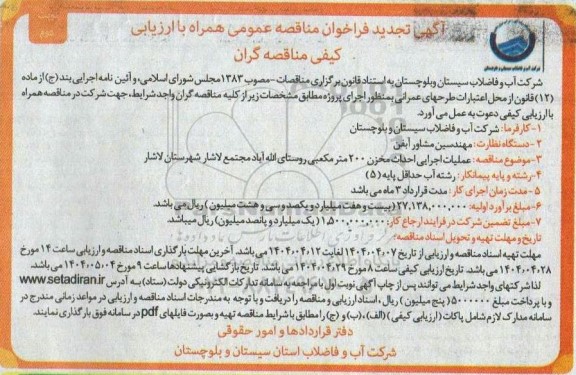 آگهی تجدید فراخوان مناقصه عمومی همراه با ارزیابی
کیفی مناقصه گران
شرکت آب و فاضلاب سیستان و بلوچستان به استناد قانون برگزاری مناقصات-مصوب ۱۳۸۳ مجلس شورای اسلامی، و آئین نامه اجرایی بند (ج) از ماده
(۱۲) قانون از محل اعتبارات طرحهای عمرانی بمنظور اجرای پروژه مطابق مشخصات زیر از کلیه مناقصه گران واجد شرایط، جهت شرکت در مناقصه همراه
با ارزیابی کیفی دعوت به عمل می آورد.
۱- کارفرما: شرکت آب و فاضلاب سیستان و بلوچستان
۲- دستگاه نظارت: مهندسین مشاور آبفن
۳- موضوع مناقصه: عملیات اجرایی احداث مخزن ۲۰۰ متر مکعبی روستای الله آباد مجتمع لاشار شهرستان لاشار
۴- رشته و پایه پیمانکار: رشته آب حداقل پایه (۵)
۵- مدت زمان اجرای کار: مدت قرارداد ۳ ماه می باشد
۶- مبلغ برآورد اولیه: ۲۷.۱۳۸.۰۰۰.۰۰۰ (بیست و هفت میلیارد و یکصد و سی و هشت میلیون) ریال می باشد.
۷- مبلغ تضمین شرکت در فرایند ارجاع کار: ۱.۵۰۰.۰۰۰.۰۰۰ (یک میلیارد و پانصد میلیون) ریال میباشد.
تاریخ و مهلت تهیه و تحویل اسناد مناقصه:
مهلت تهیه اسناد مناقصه و ارزیابی از تاریخ ۱۴۰۴.۰۴.۰۷ لغایت ۱۴۰۴.۰۴.۱۲ می باشد. آخرین مهلت بارگذاری اسناد مناقصه و ارزیابی ساعت ۱۴ مورخ
۱۴۰۴.۰۴.۲۸ می باشد. تاریخ ارزیابی کیفی ساعت ۸ مورخ ۱۴۰۴.۰۴.۲۹ می باشد. تاریخ بازگشایی پیشنهادها ساعت ۹ مورخ ۱۴۰۴.۰۵.۰۴ می باشد.
لذا شرکتهای واجد شرایط می توانند پس از چاپ آگهی نوبت اول با مراجعه به سامانه تدارکات الکترونیکی دولت (ستاد) به آدرس www.setadiran.ir
و با پرداخت مبلغ ۵۰۰۰۰۰۰ (پنج میلیون) ریال، اسناد ارزیابی و مناقصه را دریافت و با توجه به مندرجات اسناد مناقصه و ارزیابی در مواعد زمانی مندرج در
سامانه مدارک لازم شامل پاکات (ارزیابی کیفی) (الف)، (ب) و (ج) را مطابق با شرایط مناقصه تهیه و بصورت فایلهای pdf در سامانه فوق بارگذاری نمایند.
دفتر قراردادها و امور حقوقی
شرکت آب و فاضلاب استان سیستان و بلوچستان